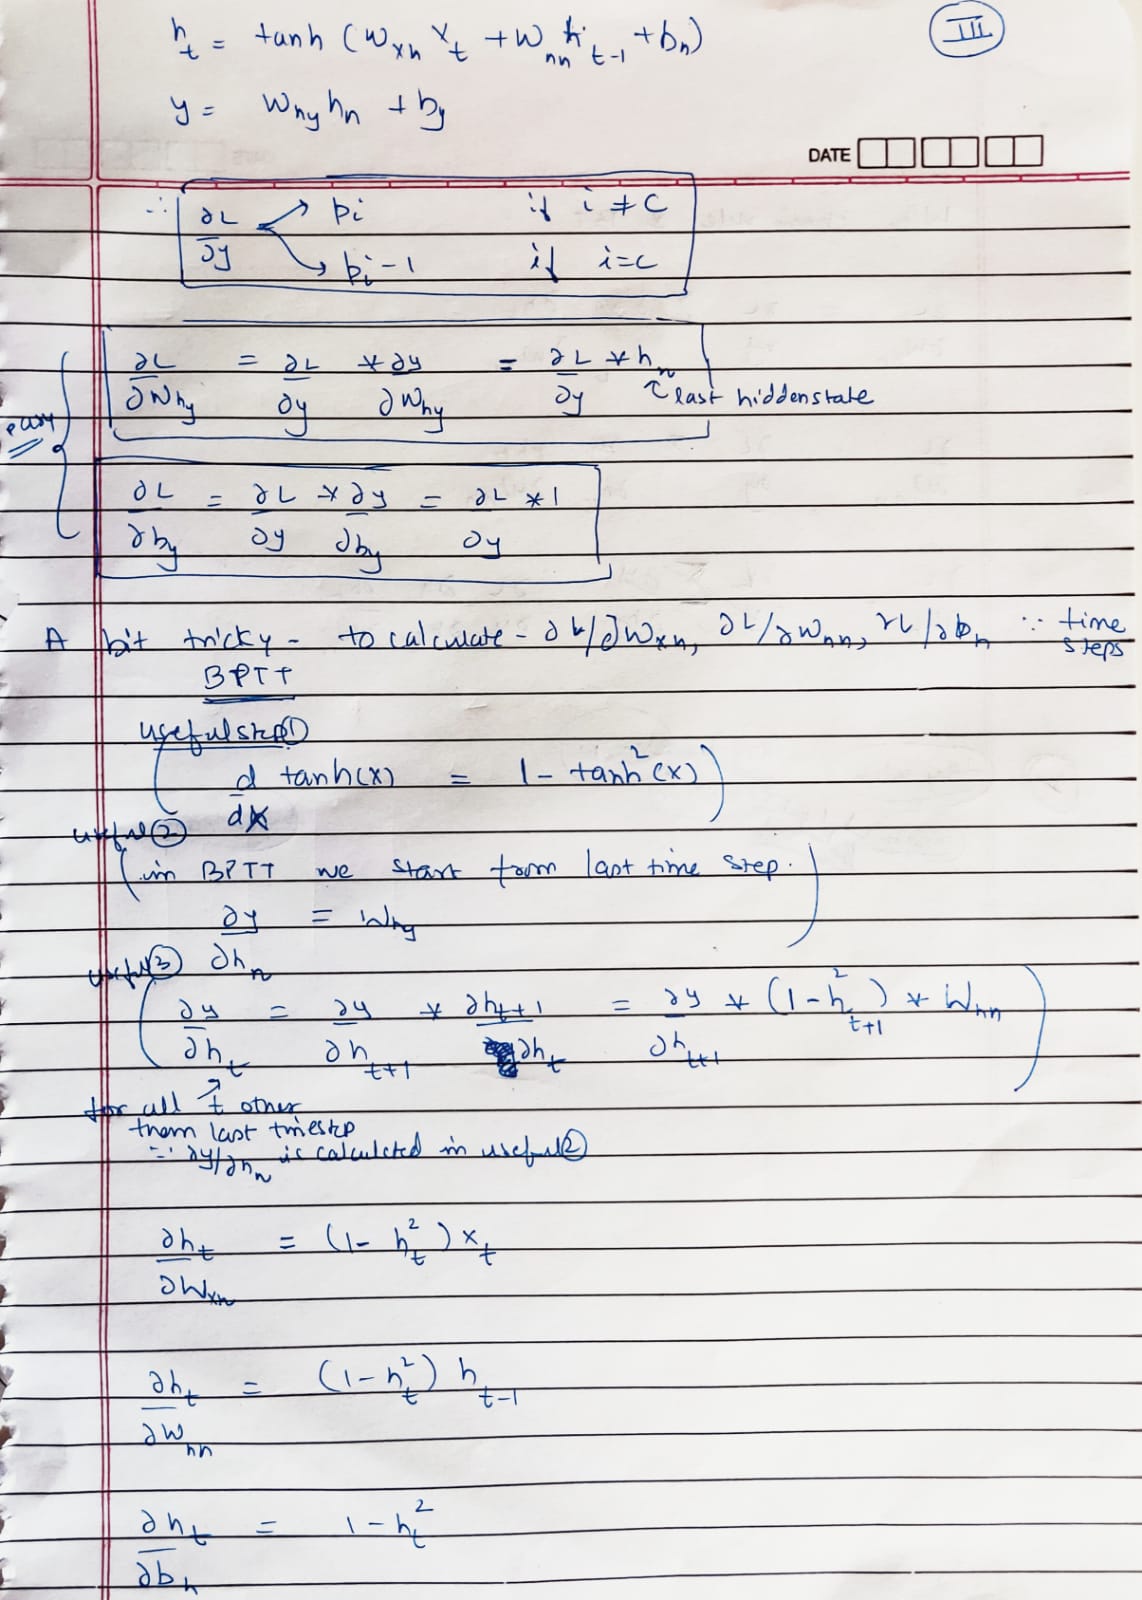 III
h_t = tanh (W_xh x_t + W_hh h_{t-1} + b_h)
y = W_hy h_n + b_y
DATE
∴ ∂L/∂y → p_i if i ≠ c
→ p_i - 1 if i = c
easy
∂L/∂W_hy = ∂L/∂y * ∂y/∂W_hy = ∂L/∂y * h_n
↑ last hidden state
∂L/∂b_y = ∂L/∂y * ∂y/∂b_y = ∂L/∂y * 1
A bit tricky - to calculate - ∂L/∂W_xh, ∂L/∂W_hh, ∂L/∂b_h ∵ time steps
BPTT
useful step ①
( d/dx tanh(x) = 1 - tanh²(x) )
useful ②
( in BPTT we start from last time step.
∂y/∂h_n = W_hy )
useful ③
( ∂y/∂h_t = ∂y/∂h_{t+1} * ∂h_{t+1}/∂h_t = ∂y/∂h_{t+1} * (1 - h²_{t+1}) * W_hh )
for all t other
than last timestep
∵ ∂y/∂h_n is calculated in useful ②
∂h_t/∂W_xh = (1 - h_t²) x_t
∂h_t/∂W_hh = (1 - h_t²) h_{t-1}
∂h_t/∂b_h = 1 - h_t²